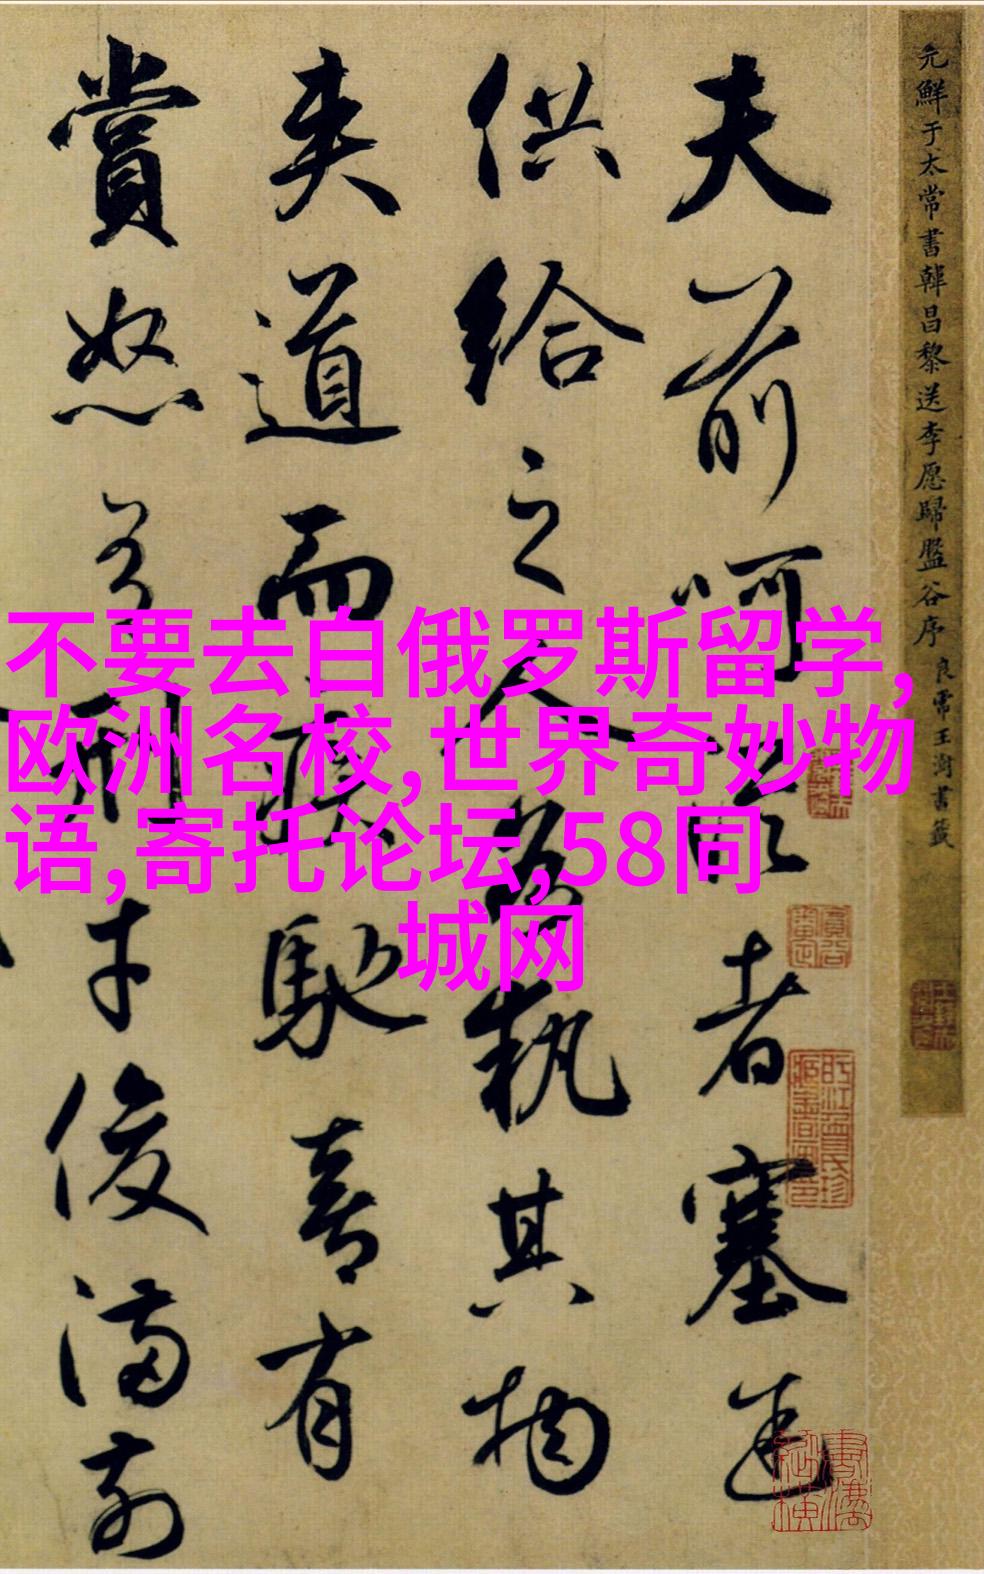 元鮮于太常書韓昌黎送李愿歸盤谷序
良常王澍書籤
夫前呵從者塞途
供給之人各執其物
夾道而疾馳喜有
賞怒有刑才俊滿前
不要去白俄罗斯留学,
欧洲名校,世界奇妙物
语,寄托论坛,58同
城网